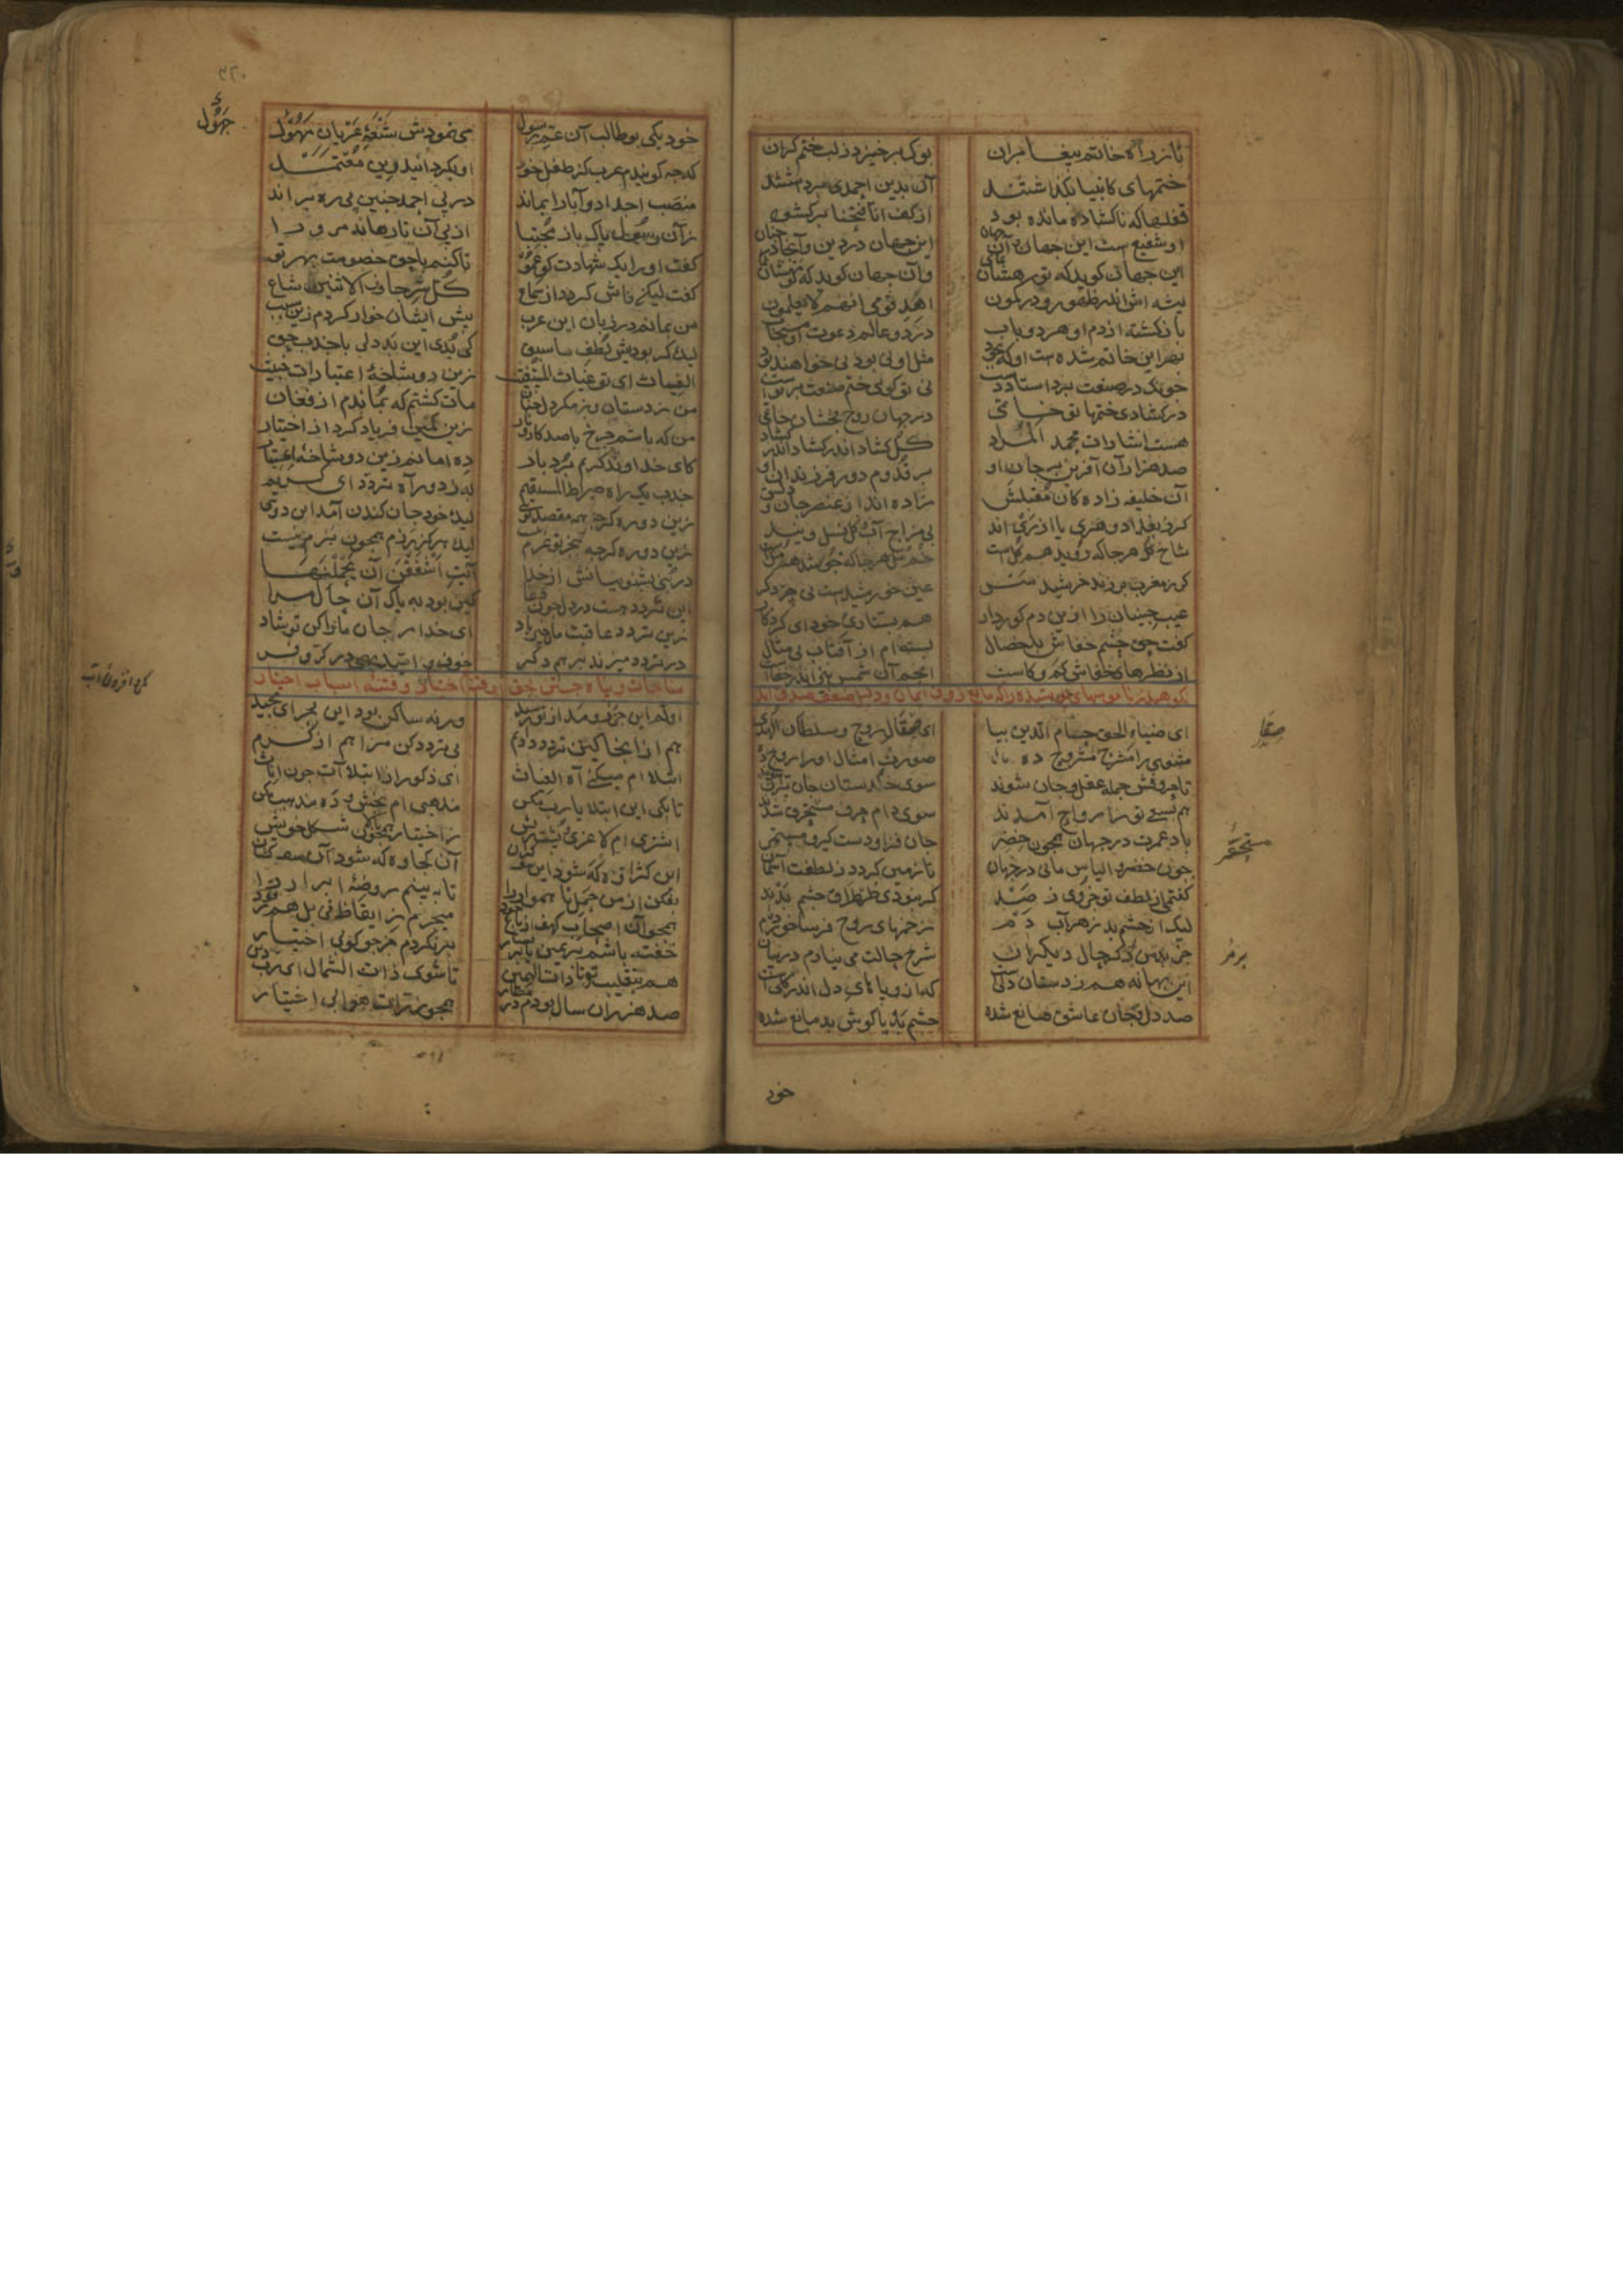 تا ز راه خاتم پیغامبران بوک برخیزد ز لب ختم کران
ختمهای کانبیا بکذاشتند آن بدین احمدی برداشتند
قفلهای ناکشاده مانده بود از کف انا فتحنا برکشود
او شفیع است این جهان و آن جهان این جهان در دین و آنجا در جنان
این جهان کوید که تو رهشان نمای وآن جهان کوید که تو مهشان نمای
پیشه اش اندر ظهور و در کمون اهد قومی انهم لا یعلمون
باز کشته از دم او هر دو باب در دو عالم دعوت او مستجاب
بهر این خاتم شده است او که بجود مثل او نی بود نی خواهند بود
چونک در صنعت برد استاد دست نی تو کویی ختم صنعت بر تو است
در کشاد ختمها تو خاتمی در جهان روح بخشان حاتمی
هست اشارات محمد المراد کل کشاد اندر کشاد اندر کشاد
صد هزاران آفرین بر جان او بر قدوم و دور فرزندان او
آن خلیفه زادکان مقبلش زاده اند از عنصر جان و دلش
کر ز بغداد و هری یا از ری اند بی مزاج آب و کل نسل ویند
شاخ کل هر جا که روید هم کل است خم مل هر جا که جوشد هم مل است
کر ز مغرب بر زند خرشید سر عین خورشیدست نی چیز دکر
عیب چینان را ازین دم کور دار هم بستاری خود ای کردکار
کفت حق چشم خفاش بدخصال بسته ام از آفتاب بی مثال
از نظرهای خفاش کم و کاست انجم آن شمس نیز اندر خفاست
نکوهیدن ناموسهای پوسیده را که مانع ذوق ایمان و دلیل ضعف صدق اند
ای ضیاء الحق حسام الدین بیا ای صقال روح و سلطان الهدی
مثنوی را مسرح مشروح ده صورت امثال او را روح ده
تا حروفش جمله عقل و جان شوند سوی خلدستان جان پران شوند
هم بسعی تو ز ارواح آمدند سوی دام حرف مستحقر شدند
باد عمرت در جهان همچون خضر جان فزا و دستکیر و مستمر
چون خضر و الیاس مانی در جهان تا زمین کردد ز لطفت آسمان
کفتمی از لطف تو جزوی ز صد کر نبودی طمطراق چشم بد
لیک از چشم بد زهرآب دم زخمهای روح فرسا خورده ام
جز برمز ذکر حال دیکران شرح حالت می نیارم در بیان
این بهانه هم ز دستان دلیست که ازو پاهای دل اندر کلیست
صد دل و جان عاشق صانع شده چشم بد یا کوش بد مانع شده
صقال
مستحقر
برمز
خود
خود یکی بوطالب آن عم رسول می نمودش شنعه عربان مهول
که چه کویندم عرب کز طفل خود او بکردانید دین معتمد
منصب اجداد و آبا را بماند در پی احمد چنین بی ره براند
کفت او را یک شهادت کو عمو تا کنم با حق خصومت بهر تو
کفت لیکن فاش کردد از سماع کل سر جاوز الاثنین شاع
من بمانم در زبان این عرب پیش ایشان خوار کردم زین سبب
لیک کر بودیش لطف ما سبق کی بدی این بددلی با جذب حق
الغیاث ای تو غیاث المستغیث زین دو شاخه اعتبارات خبیث
من ز دستان و ز مکر دل چنان مات کشتم که بماندم از فغان
من که باشم چرخ با صد کار و بار زین کمین فریاد کرد از اختیار
کای خداوند کریم بردبار ده امانم زین دو شاخه اختیار
جذب یک راهه صراط المستقیم به ز دو راه تردد ای کریم
زین دو ره کرچه همه مقصد توی لیک خود جان کندن آمد این دوی
زین دو ره کرچه بجز تو عزم نیست لیک هرکز رزم همچون بزم نیست
در نبی بشنو بیانش از خدا آیت اشفقن ان یحملنها
این تردد هست در دل چون وغا کین بود به یا که آن حال مرا
زین تردد عاقبت مان خیر باد ای خدا مر جان ما را کن تو شاد
در تردد میزند بر هم دکر خوف و امید بهی در کر و فر
مناجات و پناه جستن بحق از فتنه اختیار و فتنه اسباب اختیار
اولم این جزر و مد از تو رسید ورنه ساکن بود این بحر ای مجید
هم از آنجا کین تردد دادیم بی تردد کن مرا هم از کرم
ابتلاام میکنی آه الغیاث ای ذکور از ابتلاات چون اناث
تا بکی این ابتلا یا رب مکن مذهبی ام بخش و ده مذهب مکن
اشتری ام لاغری و پشت ریش ز اختیار همچو پالان شکل خویش
این کژاوه که شود این سو کران آن کجاوه که شود آن سو کشان
بفکن از من حمل ناهموار را تا ببینم روضه ابرار را
همچو آن اصحاب کهف از باغ جود میچرم ایقاظ نی بل هم رقود
خفته باشم بر یمین یا بر یسار بر نکردم جز چو کوی بی اختیار
هم بتقلیب تو تا ذات الیمین تا شوی ذات الشمال ای رب دین
صد هزاران سال بودم در مطار همچو ذرات هوا بی اختیار